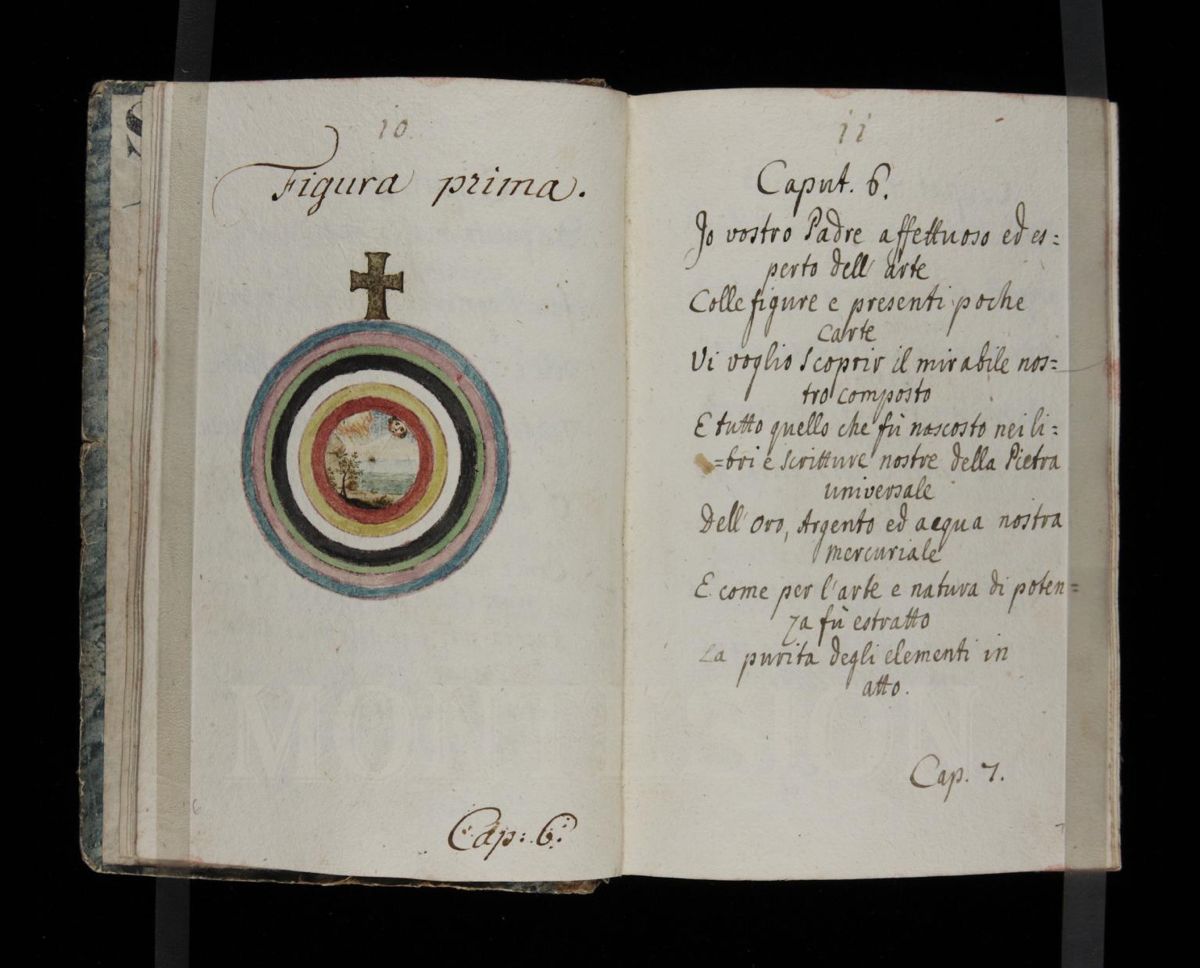 10
Figura prima.
Cap: 6.
6
11
Caput. 6.
Jo vostro Padre affettuoso ed es=
perto dell' arte
Colle figure e presenti poche
carte
Vi voglio scoprir il mirabile nos=
tro composto
E tutto quello che fù nascosto nei li=
=bri e scritture nostre della Pietra
universale
Dell' Oro, Argento ed acqua nostra
mercuriale
E come per l'arte e natura di poten=
za fù estratto
La purita degli elementi in
atto.
Cap. 7.